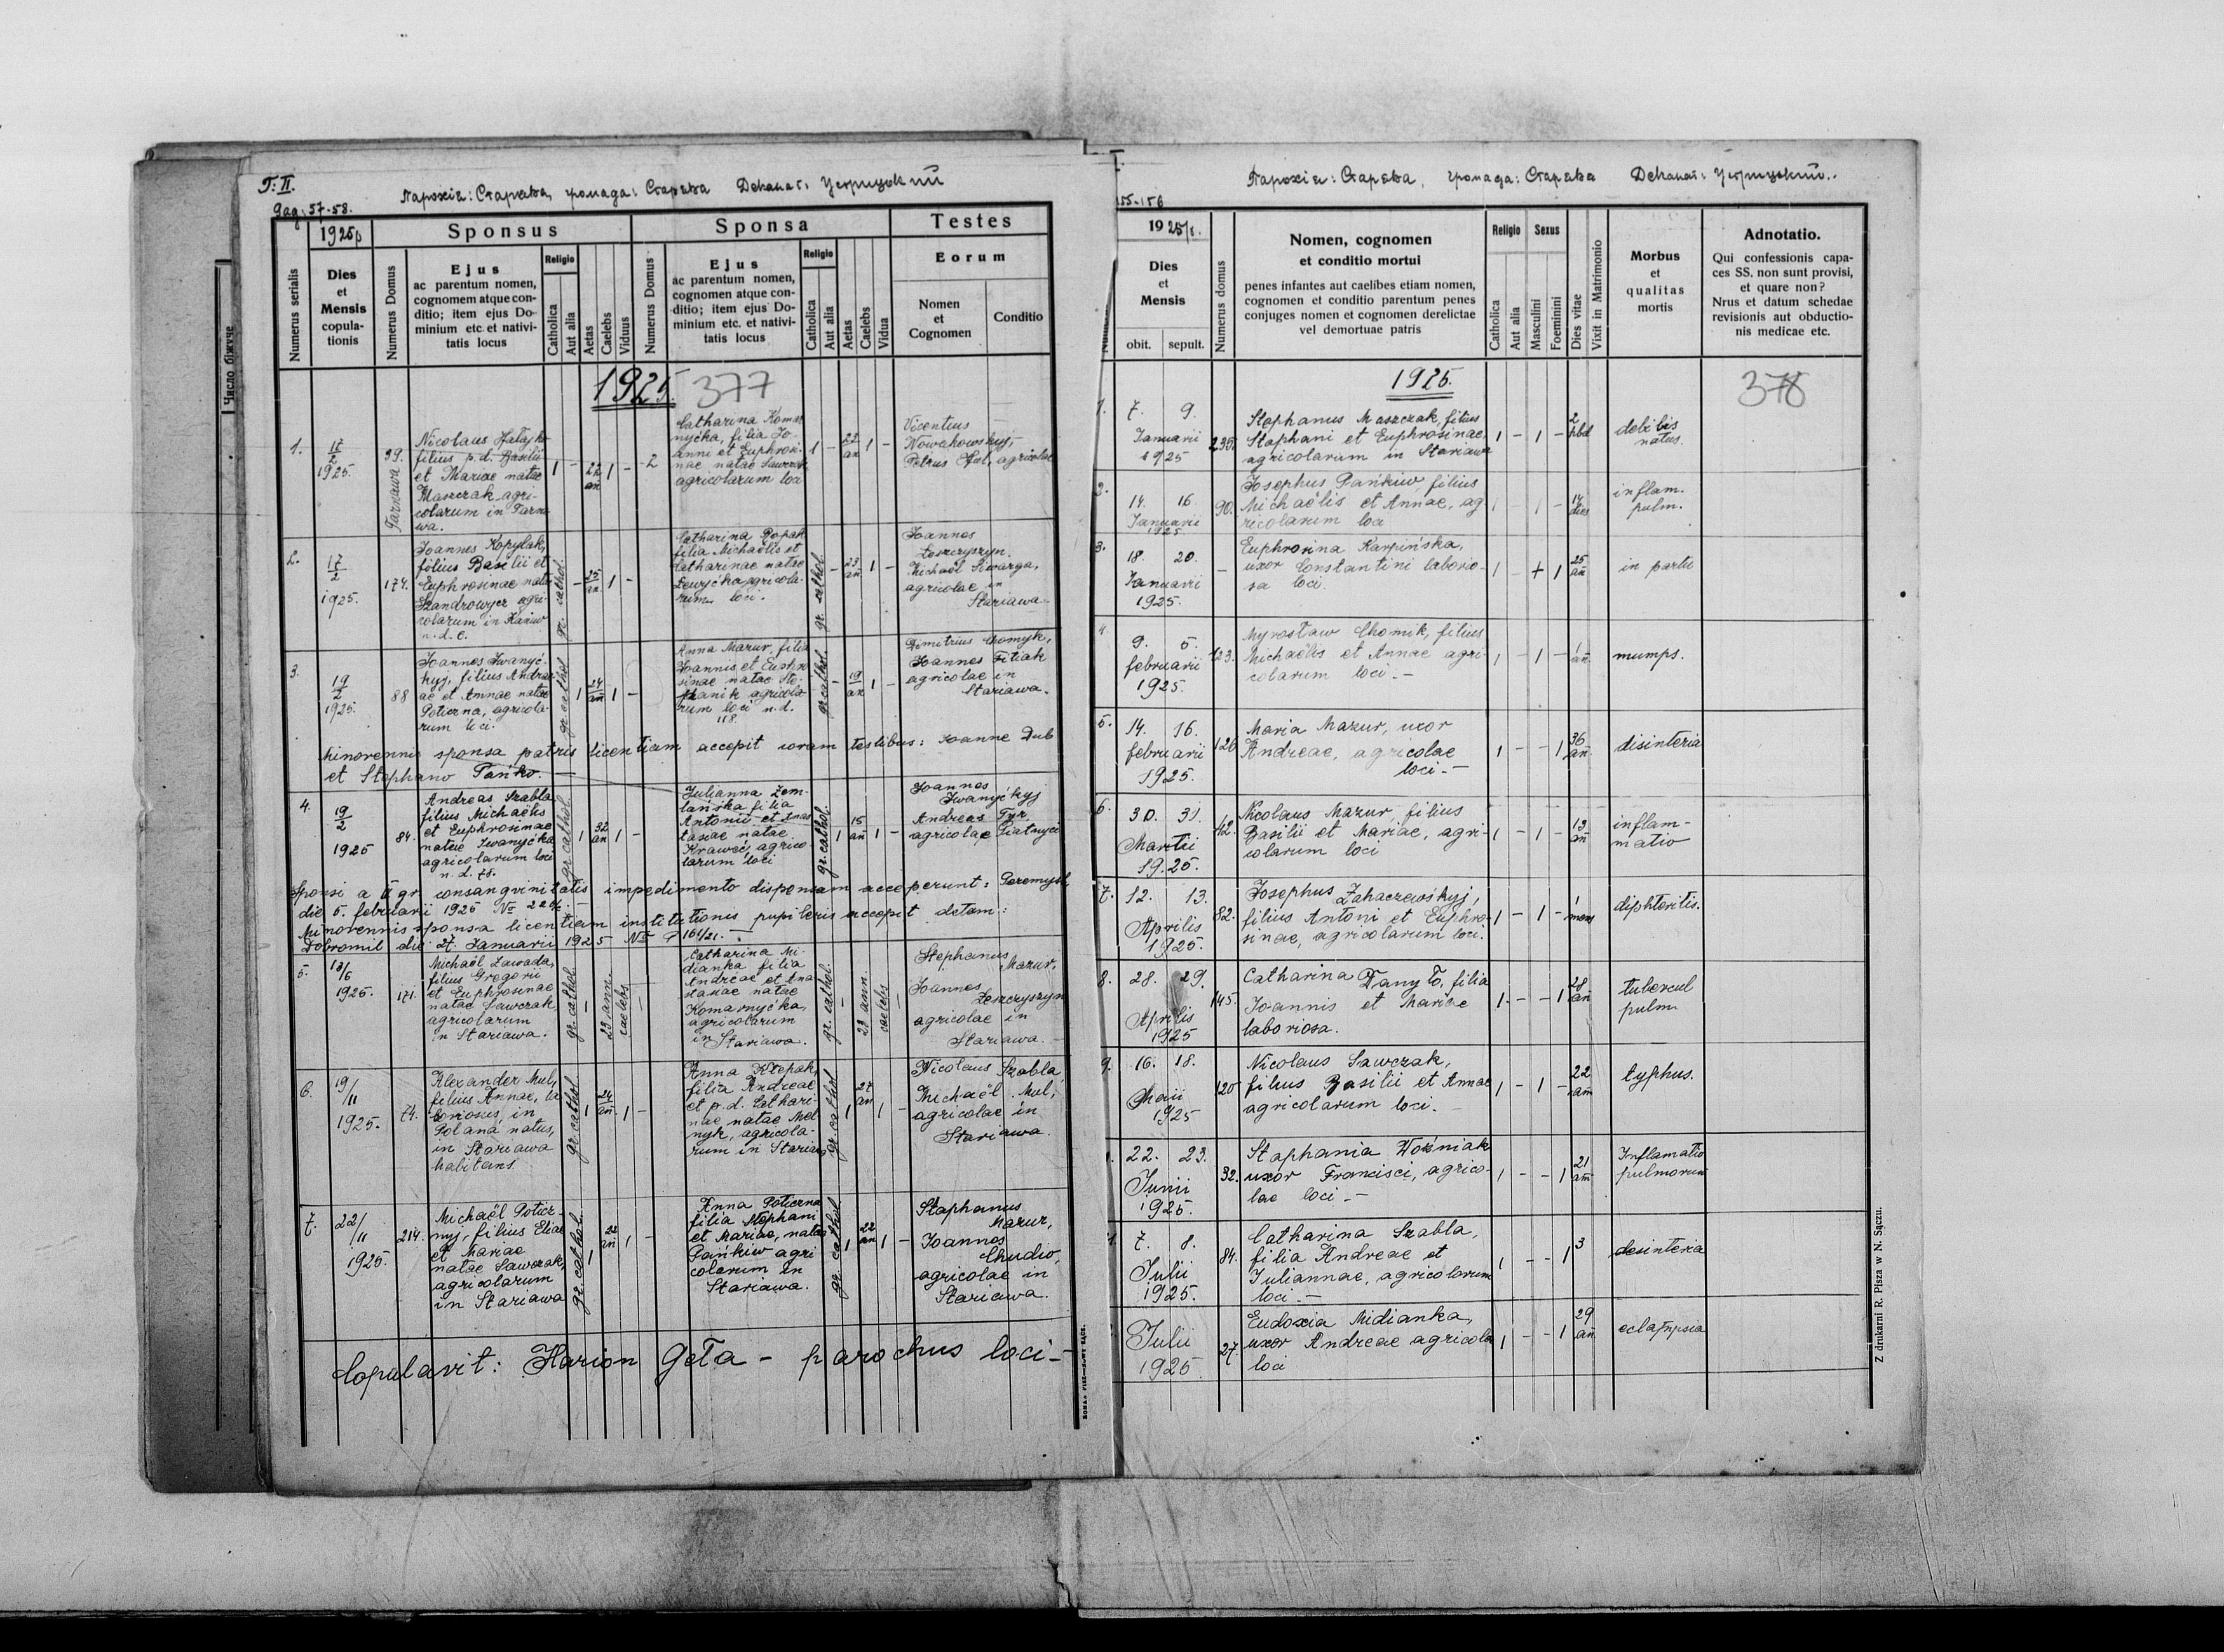 Г: II.
Парохія: Старява, громада: Старява Деканат: Устрицький
Pag: 57-58.
Numerus serialis
1925
Dies
et
Mensis
copula-
tionis
Sponsus
Numerus Domus
Ejus
ac parentum nomen,
cognomem atque con-
ditio; item ejus Do-
minium etc. et nativi-
tatis locus
Religio
Catholica
Aut alia
Aetas
Caelebs
Viduus
Sponsa
Numerus Domus
Ejus
ac parentum nomen,
cognomen atque con-
ditio; item ejus Do-
minium etc. et nativi-
tatis locus
Religio
Catholica
Aut alia
Aetas
Caelebs
Vidua
Testes
Eorum
Nomen
et
Cognomen
Conditio
1925. 377
1.
17
2
1925.
39.
Tarnawa
Nicolaus
filius p. d. Basilii
et Mariae natae
Maszczak agri-
colarum in Tarna
wa.
1 - 22 an 1 -
2
Catharina Komar
nyćka, filia Jo-
anni et Euphrosi-
nae natae Sawczak
agricolarum loci
1 - 22 an 1 -
Vicentius
Nowakowskyj,
Petrus agricolae
2.
17
2
1925.
174.
Joannes Kopylak,
filius Basilii et
Euphrosinae natae
Szandrowycz agri-
colarum in
n. d. C.
gr. cathol. - 25 an. 1 -
Catharina Popak
filia Michaëlis et
Catharinae natae
agricola-
rum loci.
gr. cathol. - 23 an 1 -
Joannes
Leszczyszyn.
Michaël Siwarga,
agricolae in
Stariawa.
3.
19
2
1925.
88
Joannes Iwanyć-
kyj, filius Andrae-
ae et Annae natae
Poticzna, agricola-
rum loci.
gr. cathol. 1 24 an 1 -
Anna Mazur, filia
Joannis et Euphro
sinae natae Ste-
phanik agricola-
rum loci n. d.
118.
gr. cathol. - 19 an 1 -
Demitrius Chomyk,
Joannes Fitiak
agricolae in
Stariawa.
Minorennis sponsa patris licentiam accepit coram testibus: Joanne Dub
et Stephano Pańko.
4.
19
2
1925
84.
Andreas Szabla
filius Michaëlis
et Euphrosinae
natae Iwanyćka
agricolarum loci
n. d. 78.
gr. cathol. 1 32 an 1 -
Julianna Zem-
lańska filia
Antonii et Anas
tasiae natae
Kraweć, agrico
larum loci
gr. cathol. 1 15 an 1 -
Joannes
Iwanyćkyj
Andreas Tyz
agricolae
Sponsi a II gr. consangvinitatis impedimento dispensam acceperunt: Peremysl,
die 5. februarii 1925 №
Minorennis sponsa licentiam institutionis pupilaris accepit datam:
Dobromil die 27. Januarii 1925 №
5.
1925.
171.
Michaël Zawada,
filius Gregorii
et Euphrosinae
natae Sawczak,
agricolarum
in Stariawa.
gr. cathol. - 23 ann. caelebs -
Catharina Mi
dianka filia
Andreae et Ana
stasiae natae
Komarnyćka,
agricolarum
in Stariawa.
gr. cathol. - 23 ann. caelebs
Stephanus
Mazur,
Joannes
Leszczyszyn
agricolae in
Stariawa.
6.
19/11
1925.
74.
Alexander Mul,
filius Annae, la
boriosus, in
Polana natus,
in Stariawa
habitans.
gr. cathol. 1 24 an. 1 -
Anna Stepak,
filia Andreae
et p. d. Cathari-
nae natae Mel
nyk, agricola-
rum in Stariawa
gr. cathol. 1 27 an 1 -
Nicolaus Szabla,
Michaël Mul,
agricolae in
Stariawa.
7.
22/11
1925.
214.
Michaël Poticz-
nyj, filius Eliae
et Mariae
natae Sawczak,
agricolarum
in Stariawa
gr. cathol. 1 22 an 1 -
Anna Poticzna
filia Stephani
et Mariae, natae
Pańkiw agri
colarum in
Stariawa.
gr. cathol. 1 22 an 1 -
Stephanus
Mazur,
Joannes
Chudio,
agricolae in
Stariawa.
Copulavit: Ilarion Geła - parochus loci -
Число біжуче
Парохія: Старява, громада: Старява Деканат: Устрицький..
155-156
1925
Dies
et
Mensis
obit. sepult.
Numerus domus
Nomen, cognomen
et conditio mortui
penes infantes aut caelibes etiam nomen,
cognomen et conditio parentum penes
conjuges nomen et cognomen derelictae
vel demortuae patris
Religio
Catholica
Aut alia
Sexus
Masculini
Foeminini
Dies vitae
Vixit in Matrimonio
Morbus
et
qualitas
mortis
Adnotatio.
Qui confessionis capa-
ces SS. non sunt provisi,
et quare non?
Nrus et datum schedae
revisionis aut obductio-
nis medicae etc.
1925. 378
1. 7. 9.
Januarii
1925
235.
Stephanus Maszczak, filius
Stephani et Euphrosinae,
agricolarum in Stariawa
1 - 1 - 2 hbd
debilis
natus.
2.
14. 16.
Januarii
1925
90.
Josephus Pańkiw, filius
Michaëlis et Annae, ag-
ricolarum loci
1 - 1 - 14 dies
inflam.
pulm.
3.
18. 20.
Januarii
1925.
-
Euphrosina Karpińska,
uxor Constantini laborio-
sa loci.
1 + 1 25 an
in partu
4.
9. 5.
februarii
1925.
123.
Myrosław Chomik, filius
Michaëlis et Annae agri-
colarum loci.-
1 - 1 - 1 an.
mumps.
5.
14. 16.
februarii
1925.
126
Maria Mazur, uxor
Andreae, agricolae
loci.-
1 - - 1 36 an.
disinteria
6.
30. 31.
Martii
1925.
42.
Nicolaus Mazur, filius
Basilii et Mariae, agri-
colarum loci
1 - 1 - 13 an
inflam-
matio
7.
12. 13.
Aprilis
1925.
82.
Josephus Zahaczewskyj,
filius Antoni et Euphro-
sinae, agricolarum loci.
1 - 1 - 1 mens
diphteritis.
8.
28. 29.
Aprilis
1925
145.
Catharina Danyło, filia
Joannis et Mariae
laboriosa.
1 - - 1 28 an
tubercul
pulm.
9.
16. 18.
Maii
1925
120
Nicolaus Sawczak,
filius Basilii et Annae
agricolarum loci.
1 - 1 - 22 ann
typhus.
22. 23.
Junii
1925.
32.
Staphania Woźniak
uxor Francisci, agrico-
lae loci.-
1 - - 1 21 ann
Inflamatio
pulmorum
7. 8.
Julii
1925.
84.
Catharina Szabla,
filia Andreae et
Juliannae, agricolarum
loci.-
1 - - 1 3
desinteria
Julii
1925
27.
Eudoxia Midianka,
uxor Andreae agricola
loci
1 - - 1 29 an
eclampsia
Z drukarni R. Pisza w N. Sączu.